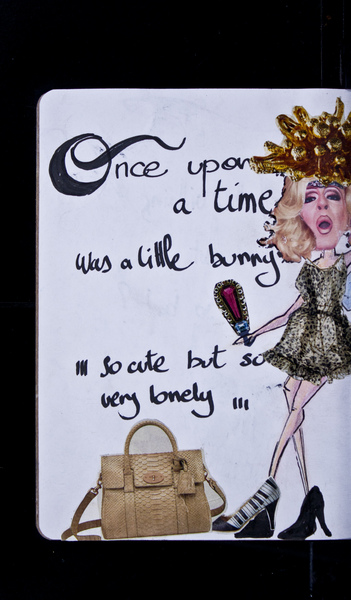 Once upon
a time
Was a little bunny
!!! So cute but so
very lonely !!!